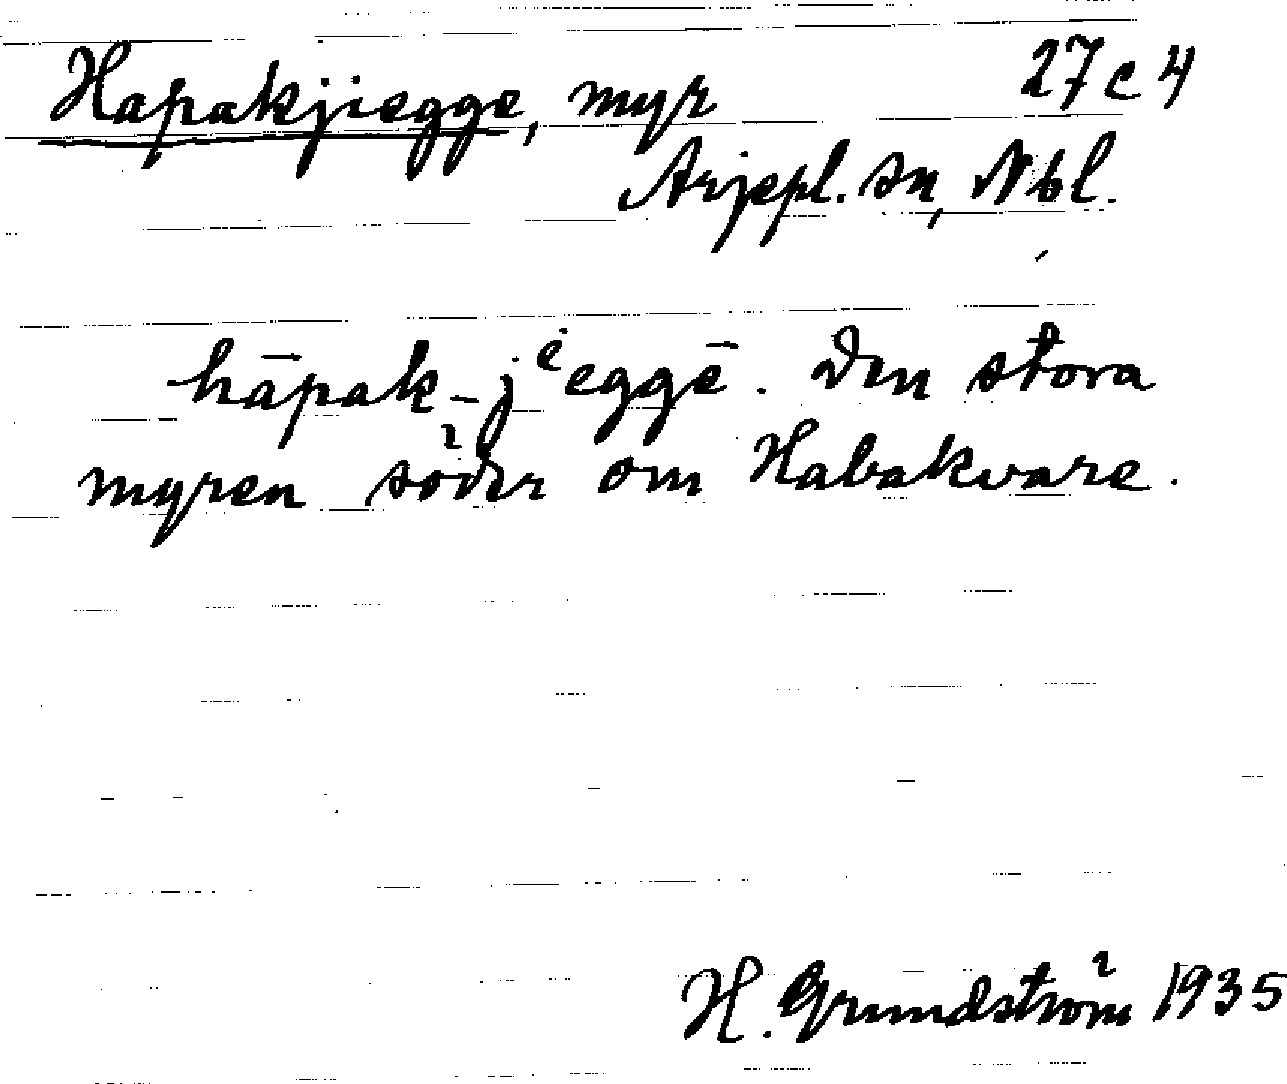 Hapakjiegge, myr 27 c 4
Arjepl. sn, Nbl.
hāpak-jᵉeggē. Den stora
myren söder om Habakvare.
H. Grundström 1935